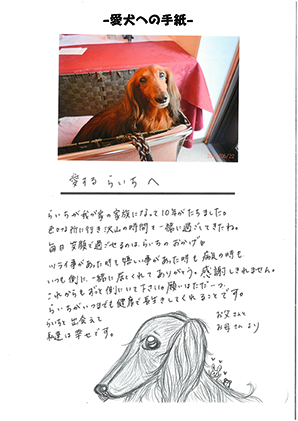 -愛犬への手紙-
愛する らいち へ
らいちが我が家の家族になって10年がたちました。
色々な所に行き沢山の時間を一緒に過ごしてきたわ。
毎日 笑顔で過ごせるのは、らいちのおかげ。
ツライ事があった時も嬉しい事があった時も病気の時も
いつも側に、一緒に居てくれてありがとう。感謝しきれません。
これからもずっと側にいて下さい。願いはただ一つ
らいちがいつまでも健康で長生きしてくれることです。
らいちと出会えて
私達は幸せです。
お父さんと
お母さんより